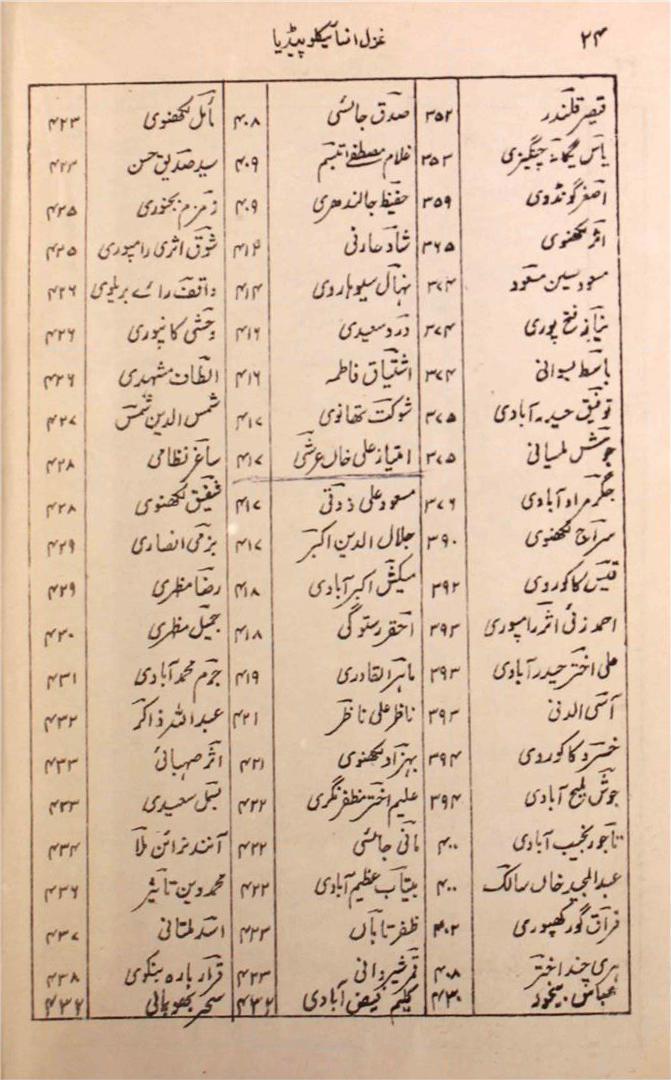 ۲۴ غزل انسائیکلوپیڈیا
قیصر قلندر ۳۵۲ صدق جائسی ۴۰۸ مائل لکھنوی ۴۲۳
یاس یگانہ چنگیزی ۳۵۳ غلام مصطفےٰ تبسم ۴۰۹ سید صدیق حسن ۴۲۳
اصغر گونڈوی ۳۵۹ حفیظ جالندھری ۴۰۹ زمزم بجنوری ۴۲۵
اثر لکھنوی ۳۶۵ شاد عارفی ۴۱۴ شوق اثری رامپوری ۴۲۵
مسعود حسین مسعود ۳۷۴ نہال سیوہاروی ۴۱۴ واقف رائے بریلوی ۴۲۶
نیاز فتح پوری ۳۷۴ درد سعیدی ۴۱۶ وحشی کانپوری ۴۲۶
باسط بسوانی ۳۷۴ اشتیاق فاطمہ ۴۱۶ الطاف مشہدی ۴۲۶
توفیق حیدرآبادی ۳۷۵ شوکت تھانوی ۴۱۷ شمس الدین شمس ۴۲۷
جوش ملسیانی ۳۷۵ امتیاز علی خاں عرشی ۴۱۷ ساغر نظامی ۴۲۸
جگر مرادآبادی ۳۷۶ مسعود علی ذوقی ۴۱۷ شفیق لکھنوی ۴۲۸
سراج لکھنوی ۳۹۰ جلال الدین اکبر ۴۱۷ بزمی انصاری ۴۲۹
قیس کاکوروی ۳۹۲ میکش اکبرآبادی ۴۱۸ رضا مظہری ۴۲۹
احمد زئی اثر رامپوری ۳۹۳ احقر رستوگی ۴۱۸ جمیل مظہری ۴۳۰
علی اختر حیدرآبادی ۳۹۳ ماہر القادری ۴۱۹ جرم محمدآبادی ۴۳۱
آسی الدنی ۳۹۳ ناظر علی ناظر ۴۲۱ عبداللہ ذاکر ۴۳۲
خسرو کاکوروی ۳۹۴ بہزاد لکھنوی ۴۲۱ اثر صہبائی ۴۳۳
جوش ملیح آبادی ۳۹۴ علیم اختر مظفر نگری ۴۲۲ بسمل سعیدی ۴۳۳
تاجور نجیب آبادی ۴۰۰ مانی جائسی ۴۲۲ آنند نرائن ملا ۴۳۴
عبدالمجید خاں سالک ۴۰۰ بیتاب عظیم آبادی ۴۲۲ محمد دین تاثیر ۴۳۶
فراق گورکھپوری ۴۰۲ ظفر تاباں ۴۲۳ اسد ملتانی ۴۳۷
ہری چند اختر ۴۰۸ قمر شیروانی ۴۲۳ قرار بارہ بنکوی ۴۳۸
عباس بیخود ۴۳۰ کلیم فیض آبادی ۴۳۲ سحر بھوپالی ۴۳۲